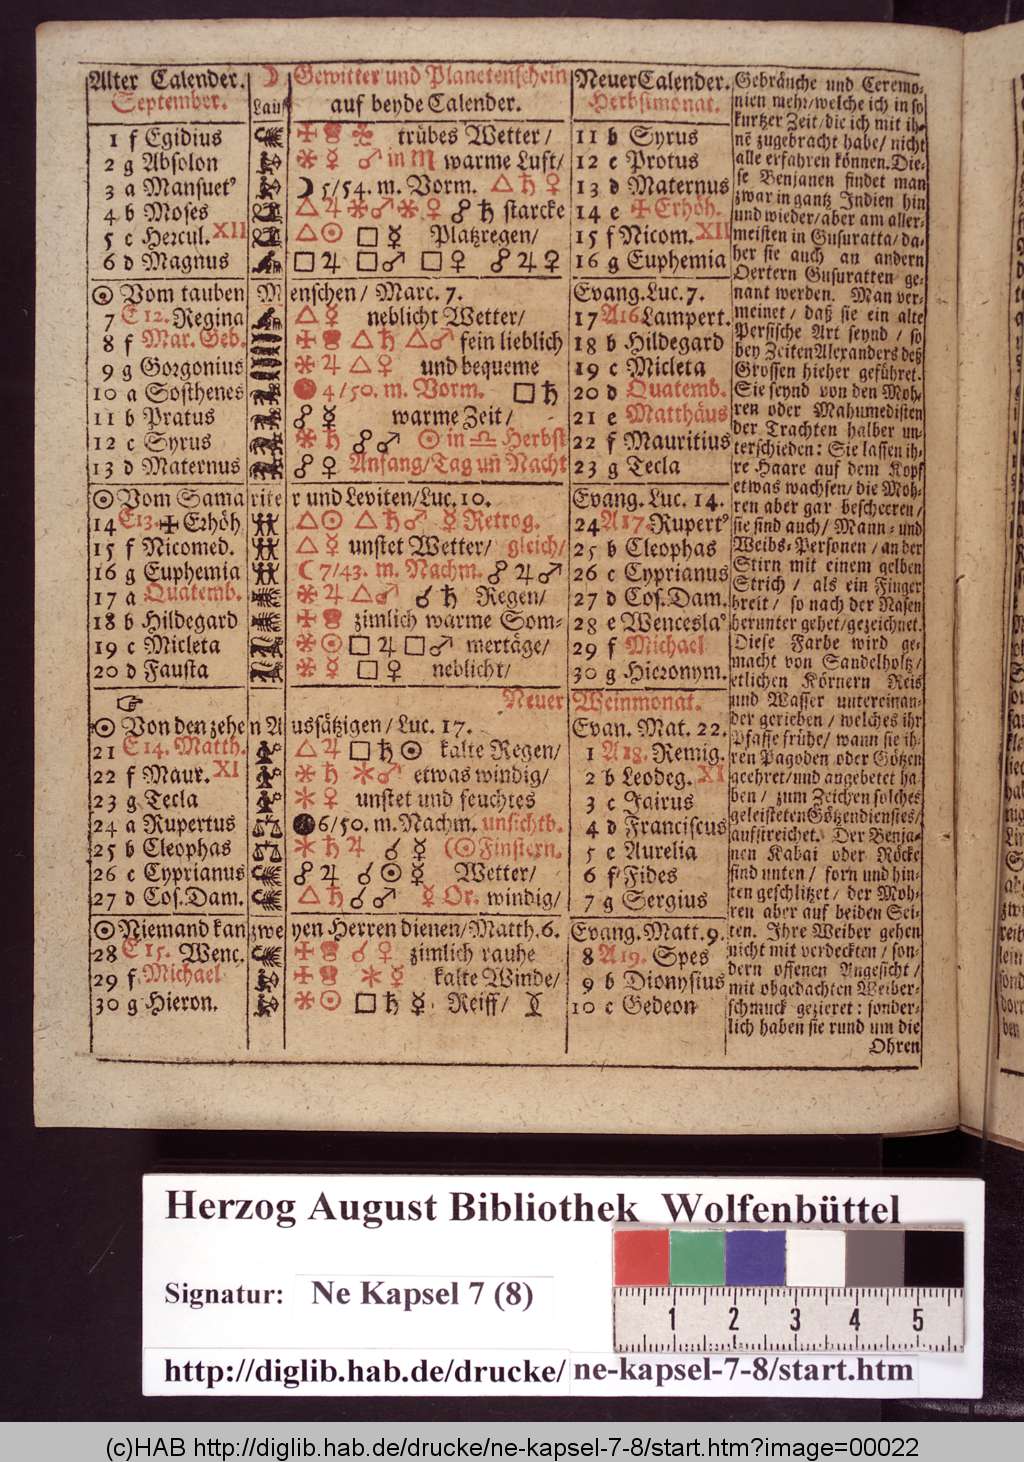 Alter Calender. ☽ Gewitter und Planetenschein Neuer Calender.
September. Lauf auf beyde Calender. Herbstmonat.
1 f Egidius trübes Wetter/ 11 b Syrus
2 g Absolon ♂ in ♏ warme Luft/ 12 c Protus
3 a Mansuet⁹ ☽ 5/54. m. Vorm. △ ♄ ♀ 13 d Maternus
4 b Moses △ ♃ ✲ ♂ ✲ ♀ ☍ ♄ starcke 14 e ✠ Erhöh.
5 c Hercul. XII △ ☉ □ ☿ Platzregen/ 15 f Nicom. XII
6 d Magnus □ ♃ □ ♂ □ ♀ ☍ ♃ ♀ 16 g Euphemia
☉ Vom tauben Menschen/ Marc. 7. Evang. Luc. 7.
7 E 12. Regina △ ☿ neblicht Wetter/ 17 A 16 Lampert.
8 f Mar. Geb. △ ♄ △ ♂ fein lieblich 18 b Hildegard
9 g Gorgonius ✲ ♃ △ ♀ und bequeme 19 c Micleta
10 a Sosthenes 4/50. m. Vorm. □ ♄ 20 d Quatemb.
11 b Pratus ☍ ☿ warme Zeit/ 21 e Matthäus
12 c Syrus ✲ ♄ ☍ ♂ ☉ in ♎ Herbst 22 f Mauritius
13 d Maternus ☍ ♀ Anfang/Tag uñ Nacht 23 g Tecla
☉ Vom Samariter und Leviten/Luc. 10. Evang. Luc. 14.
14 E 13. ✠ Erhöh △ ☉ △ ♄ ♂ ☿ Retrog. 24 A 17. Rupert⁹
15 f Nicomed. △ ☿ unstet Wetter/ gleich/ 25 b Cleophas
16 g Euphemia ☾ 7/43. m. Nachm. ☍ ♃ ♂ 26 c Cyprianus
17 a Quatemb. ✲ ♃ △ ♂ ☌ ♄ Regen/ 27 d Cos. Dam.
18 b Hildegard zimlich warme Som- 28 e Wencesla⁹
19 c Micleta ✲ ☉ □ ♃ □ ♂ mertäge/ 29 f Michael
20 d Fausta ✲ ☿ □ ♀ neblicht/ 30 g Hieronym.
☞ Neuer Weinmonat.
☉ Von den zehen Aussätzigen/ Luc. 17. Evan. Mat. 22.
21 E 14. Matth. △ ♃ □ ♄ ☉ kalte Regen/ 1 A 18. Remig.
22 f Maur. XI ✲ ♄ ✲ ♂ etwas windig/ 2 b Leodeg. XI
23 g Tecla ✲ ♀ unstet und feuchtes 3 c Jairus
24 a Rupertus 6/50. m. Nachm. unsichtb. 4 d Franciscus
25 b Cleophas ✲ ♄ ♃ ☌ ☿ (☉ Finstern. 5 e Aurelia
26 c Cyprianus ☍ ♃ ☌ ☉ ☿ Wetter/ 6 f Fides
27 d Cos. Dam. △ ♄ ☌ ♂ ☿ Or. windig/ 7 g Sergius
☉ Niemand kan zweyen Herren dienen/Matth. 6. Evang. Matt. 9.
28 E 15. Wenc. ☌ ♀ zimlich rauhe 8 A 19. Spes
29 f Michael ✲ ☿ kalte Winde/ 9 b Dionysius
30 g Hieron. ✲ ☉ □ ♄ ☿ Reiff/ 10 c Gedeon
Gebräuche und Ceremo-
nien mehr/welche ich in so
kurtzer Zeit/die ich mit ih-
nẽ zugebracht habe/ nicht
alle erfahren können. Die-
se Benjanen findet man
zwar in gantz Indien hin
und wieder/aber am aller-
meisten in Gusuratta/ da-
her sie auch an andern
Oertern Gusuratten ge-
nant werden. Man ver-
meinet/ daß sie ein alte
Persische Art seynd/ so
bey Zeiten Alexanders deß
Grossen hieher geführet.
Sie seynd von den Moh-
ren oder Mahumedisten
der Trachten halber un-
terschieden: Sie lassen ih-
re Haare auf dem Kopf
etwas wachsen/ die Moh-
ren aber gar bescheeren/
sie sind auch/ Mann- und
Weibs-Personen/an der
Stirn mit einem gelben
Strich/ als ein Finger
breit/ so nach der Nasen
herunter gehet/gezeichnet.
Diese Farbe wird ge-
macht von Sandelholtz/
etlichen Körnern Reis
und Wasser untereinan-
der gerieben/ welches ihr
Pfaffe frühe/ wann sie ih-
ren Pagoden oder Götzen
geehret/und angebetet ha-
ben/ zum Zeichen solches
geleisteten Götzendienstes/
aufstreichet. Der Benja-
nen Kabai oder Röcke
sind unten/ forn und hin-
ten geschlitzet/ der Moh-
ren aber auf beiden Sei-
ten. Ihre Weiber gehen
nicht mit verdeckten/ son-
dern offenen Angesicht/
mit obgedachten Weiber-
schmuck gezieret: sonder-
lich haben sie rund um die
Ohren
Herzog August Bibliothek Wolfenbüttel
Signatur: Ne Kapsel 7 (8)
1 2 3 4 5
http://diglib.hab.de/drucke/ ne-kapsel-7-8/start.htm
(c)HAB http://diglib.hab.de/drucke/ne-kapsel-7-8/start.htm?image=00022